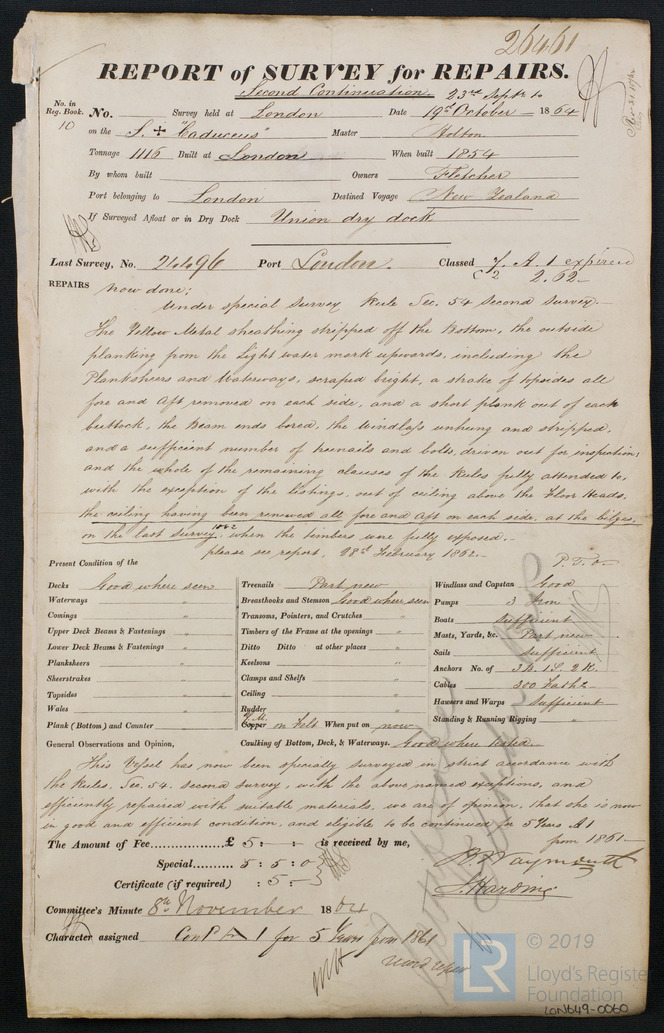 26461
REPORT of SURVEY for REPAIRS.
Second Continuation. 23rd Septr to
No. in Reg. Book. No. Survey held at London Date 19th October 1864
10 on the S. "Caduceus" Master Holton
Tonnage 1116 Built at London When built 1854
By whom built Owners Fletcher
Port belonging to London Destined Voyage New Zealand
If Surveyed Afloat or in Dry Dock Union dry dock
Last Survey, No. 24496 Port London. Classed A. 1 expired
2.62
REPAIRS now done;
Under special survey Rule Sec. 54 second survey.
The Yellow Metal sheathing stripped off the Bottom, the outside
planking from the light water mark upwards, including the
Planksheers and Waterways, scraped bright, a strake of topsides all
fore and aft removed on each side, and a short plank out of each
buttock, the Beam ends bored, the Windlass unhung and stripped,
and a sufficient number of treenails and bolts, driven out for inspection;
and the whole of the remaining clauses of the Rules fully attended to,
with the exception of the listings, out of ceiling above the Floor Heads.
the ceiling having been renewed all fore and aft on each side, at the bilges,
on the last survey, 1862 when the timbers were fully exposed.
please see report, 28th February 1862.
P.T.O.
Present Condition of the
Decks Good where seen
Waterways "
Comings "
Upper Deck Beams & Fastenings "
Lower Deck Beams & Fastenings "
Planksheers "
Sheerstrakes "
Topsides "
Wales "
Plank (Bottom) and Counter "
Treenails Part new
Breasthooks and Stemson Good where seen
Transoms, Pointers, and Crutches "
Timbers of the Frame at the openings "
Ditto Ditto at other places "
Keelsons "
Clamps and Shelfs "
Ceiling "
Rudder "
Y.M. Copper on felt When put on now
Windlass and Capstan Good
Pumps 3 Iron
Boats Sufficient
Masts, Yards, &c. Part new
Sails Sufficient
Anchors No. of 3B. 1S. 2K.
Cables 300 Faths
Hawsers and Warps Sufficient
Standing & Running Rigging "
General Observations and Opinion, Caulking of Bottom, Deck, & Waterways. Good where tested
This Vessel has now been specially surveyed in strict accordance with
the Rules, Sec. 54. second survey, with the above named exceptions, and
efficiently repaired with suitable materials, we are of opinion, that she is now
in good and efficient condition, and eligible to be continued 5 Years A 1
from 1861
The Amount of Fee £ 5 : - : - is received by me,
Special 5 : 5 : 0
Certificate (if required) : 5 : -
J. Harding
Committee's Minute 8th November 1864
Character assigned Cond A 1 for 5 Years from 1861
LR © 2019
Lloyd's Register
Foundation
LON649-0060